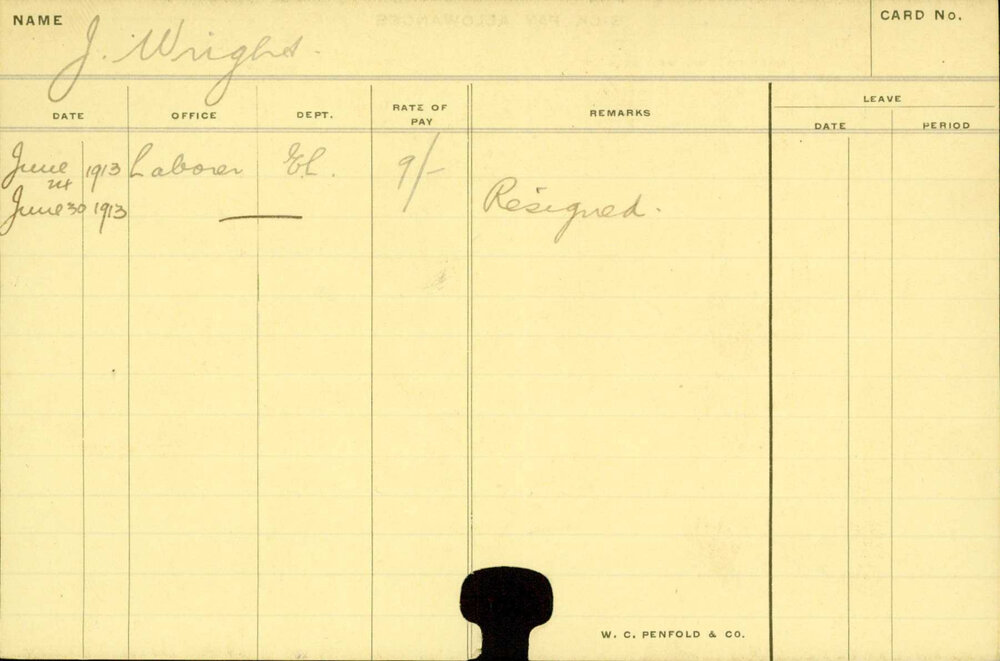 NAME J. Wright. CARD No.
DATE OFFICE DEPT. RATE OF PAY REMARKS LEAVE
DATE PERIOD
June 24 1913 Laborer El. 9/-
June 30 1913 Resigned.
W. C. PENFOLD & CO.